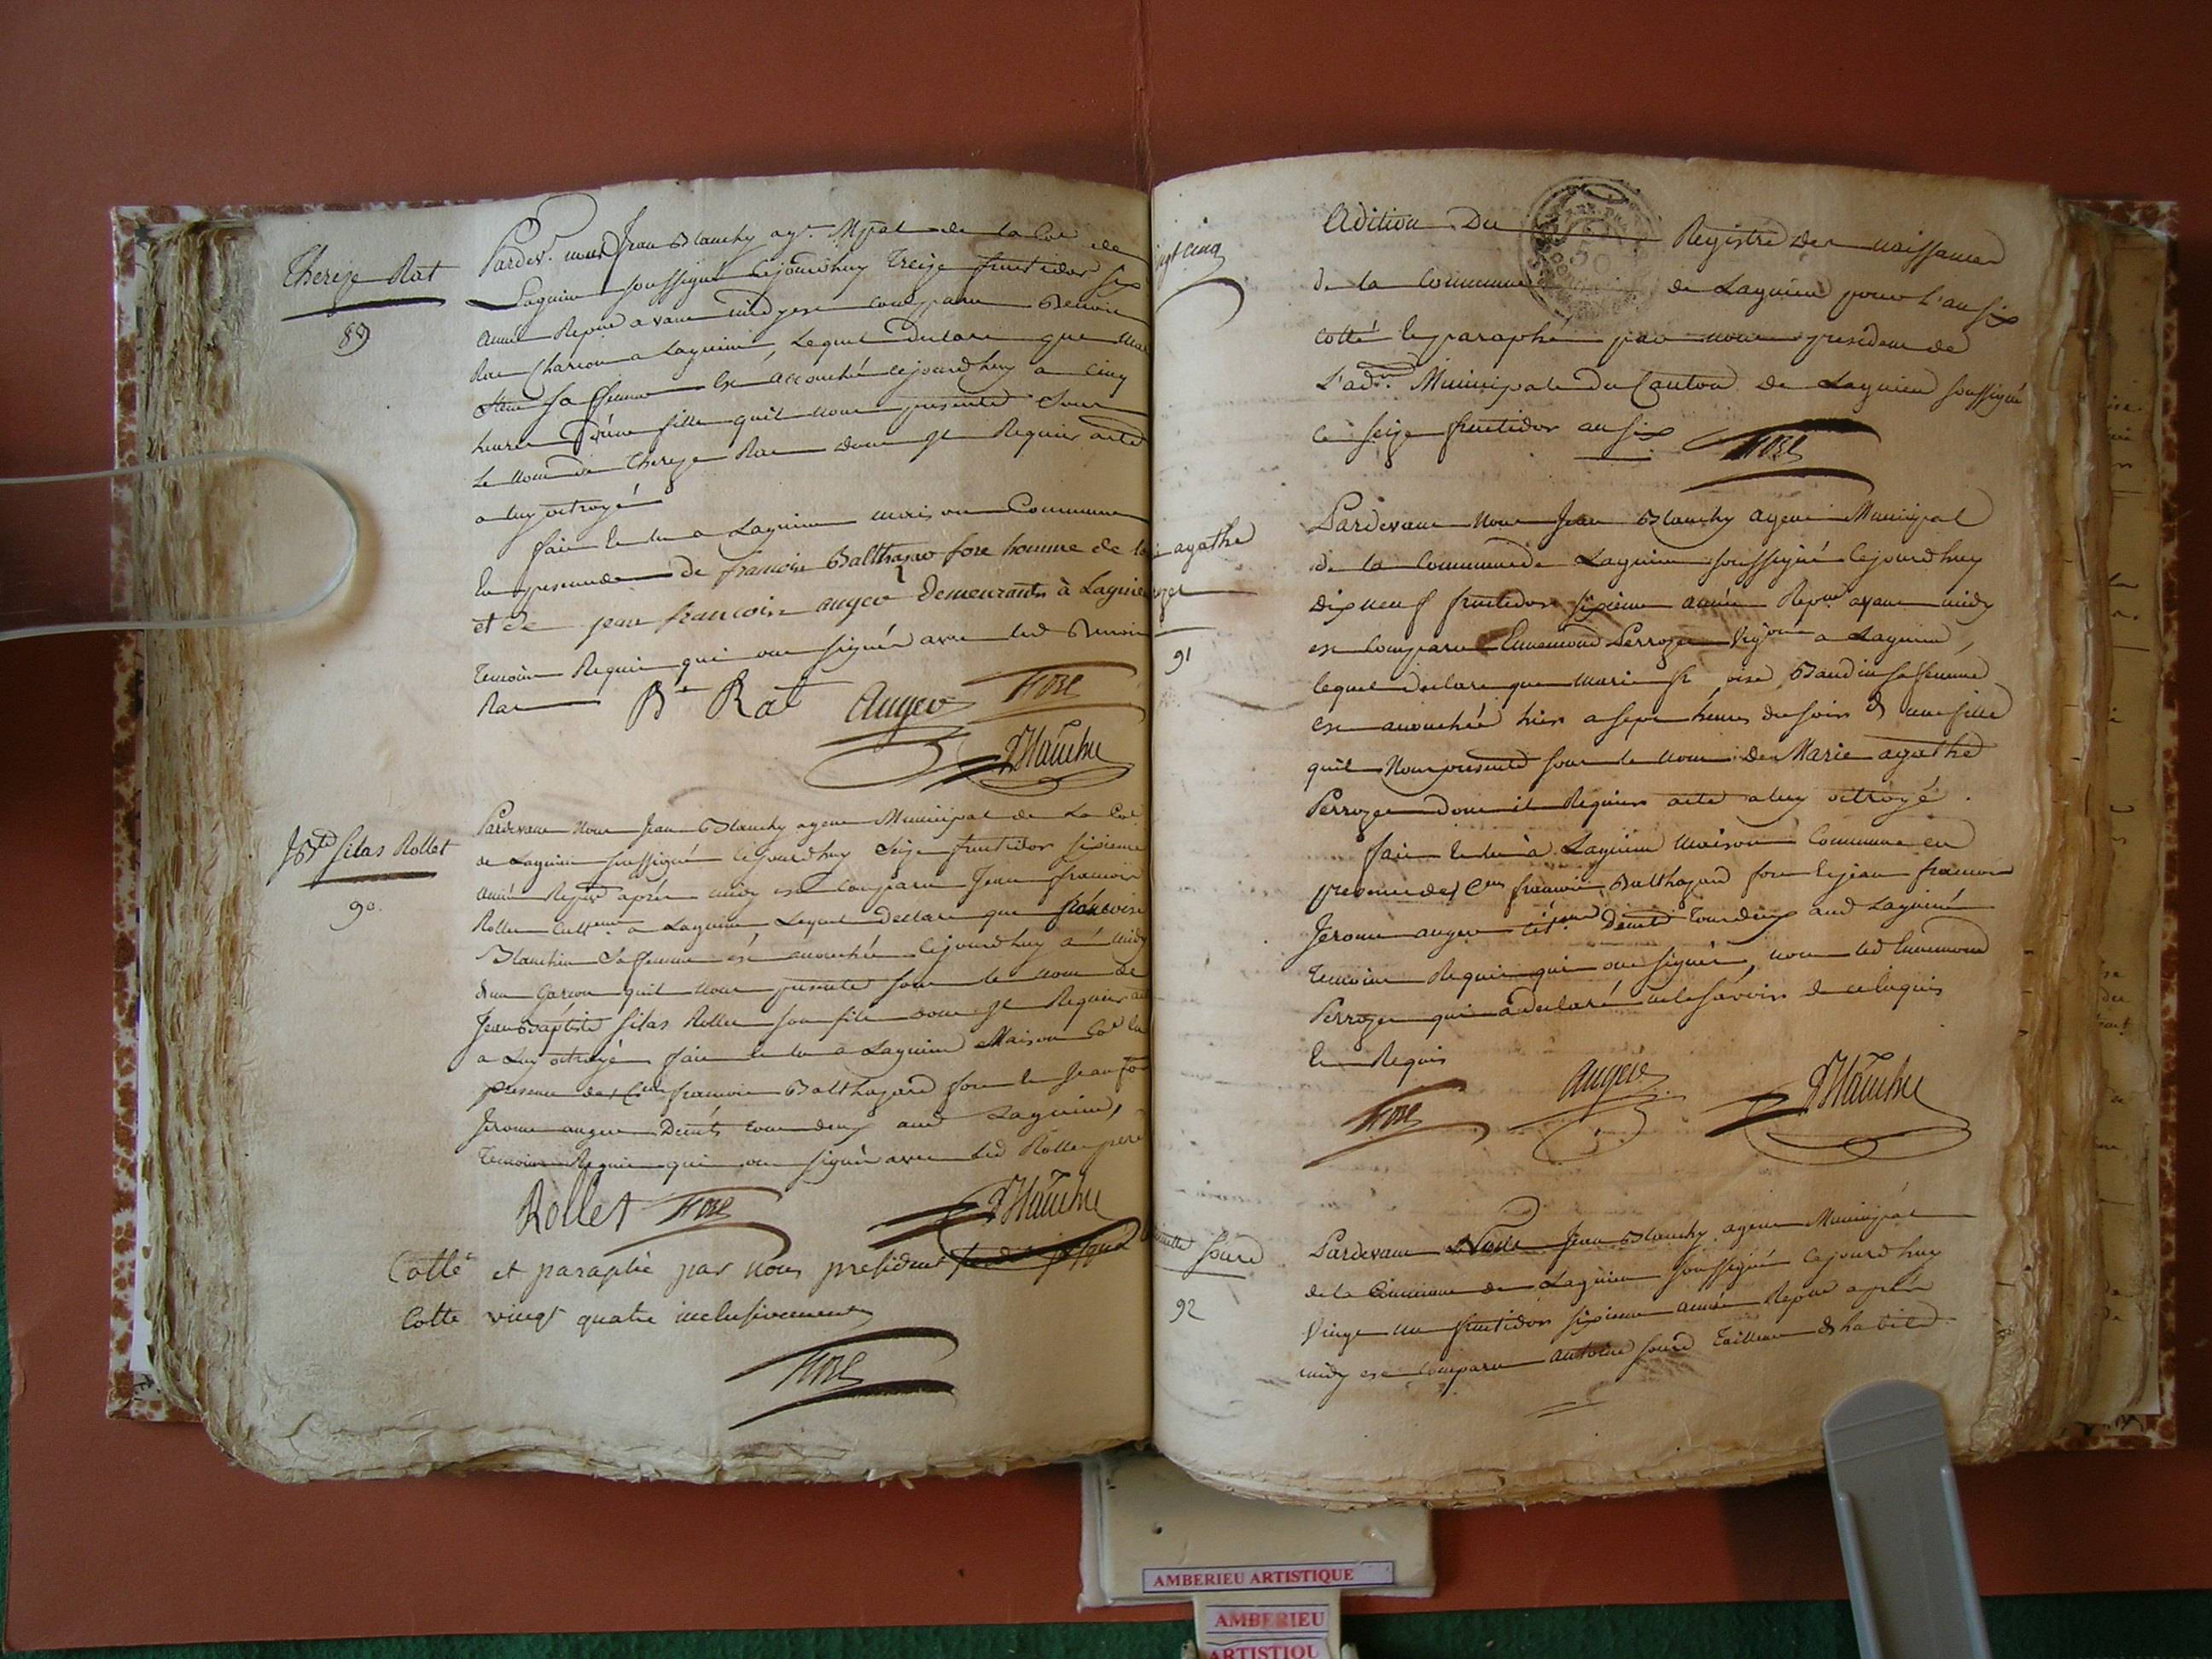 Thereze Rat
89
Pardev.t nous Jean Blanchy ag.t Mpal de la Coe de
Lagnieu soussigné cejourdhuy treize fructidor six
année Repne avant midy est comparu Benoit
Rat Charron a Lagnieu, Lequel declare que
sa femme est accouchée cejourdhuy a cinq
heures d'une fille quil nous presente sous
le nom de Thereze Rat dont il Requier acte
a luy octroyé
fait et lu a Lagnieu maison Commune
En presence de francois Balthazar fore homme de
et de jean francois auger demeurants à Lagnieu
temoins Requis qui ont signés avec led Benoit
Rat
Bt Rat Auger Fore
Blanchy
J Bte silas Rollet
90.
Pardevant Nous Jean Blanchy agent Municipal de La Coe
de Lagnieu soussigné cejourdhuy seize fructidor sixieme
année Repne après midy est comparu Jean francois
Rollet cultteur a Lagnieu Lequel declare que francoise
Blanchin sa femme est accouchée cejourdhuy a midy
d'un garcon quil nous presente sous le nom de
Jean Baptiste silas Rollet son fils dont il Requier acte
a Luy octroyé fait et lu a Lagnieu Maison Coe En
presence des Cens francois Balthazard fore et Jean fois
Jerome auger Demts tous deux aud Lagnieu,
temoins Requis qui ont signés avec led Rollet pere
Rollet Fore Blanchy
Cotté et paraphé par nous president
Cotte vingt quatre inclusivement
Fore
vingt cinq
Adition Du Registre des naissances
de la Commune de Lagnieu pour l'an six
cotté et paraphé par nous président de
L'adon Municipale du Canton de Lagnieu soussigné
ce seize fructidor an six
Fore
agathe
91
Pardevant Nous Jean Blanchy agent Municipal
de la Commune de Lagnieu soussigné cejourdhuy
dix neuf fructidor sixieme année Repne avant midy
est comparu Ennemond Perrozet a Lagnieu,
lequel declare que marie Baudin sa femme
est accouchée hier a sept heures du soir d'une fille
quil Nous presente sous le nom de Marie agathe
Perrozet dont il Requier acte a luy octroyé.
fait et lu à Lagnieu maison Commune en
presence des Cens francois Balthazard fore et jean francois
Jerome auger Demts tous deux aud Lagnieu
temoins Requis qui ont signés, non led Ennemond
Perrozet qui a declaré ne le savoir de ce Enquis
Et Requis
Fore Auger Blanchy
sourd
92
Pardevant Nous Jean Blanchy agent Municipal
de la Commune de Lagnieu soussigné cejourdhuy
Vingt un fructidor sixieme année Repne après
midy est comparu antoine sourd Tailleur d'habits
AMBERIEU ARTISTIQUE
AMBERIEU
ARTISTIQU